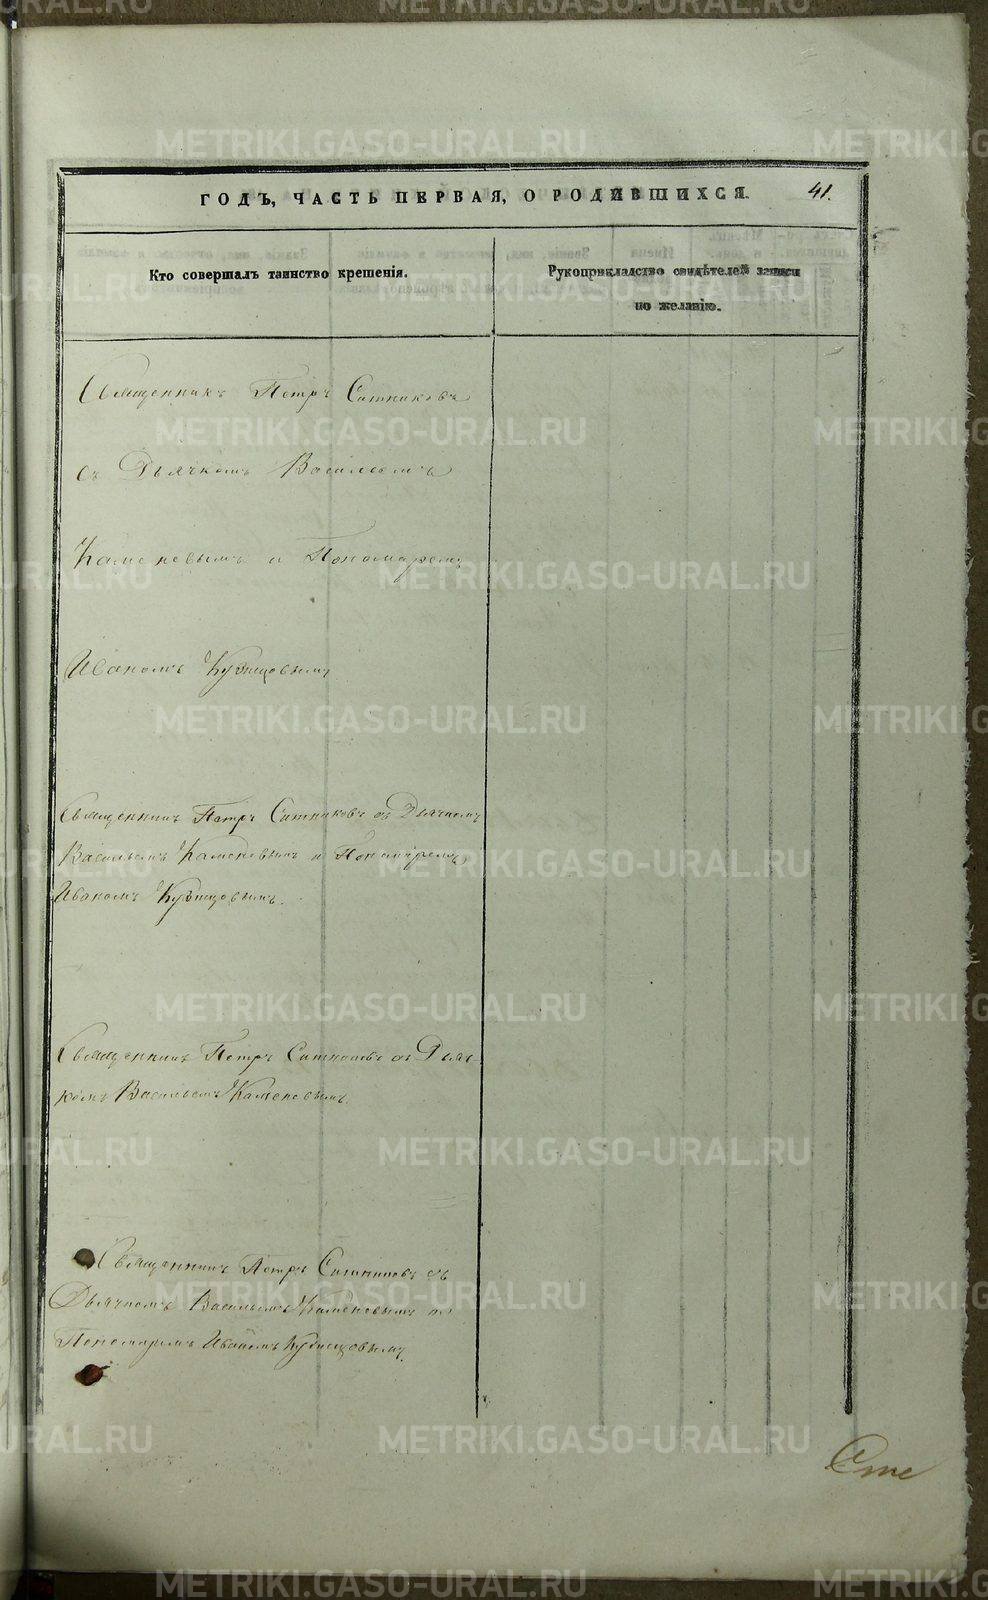 ГОДЪ, ЧАСТЬ ПЕРВАЯ, О РОДИВШИХСЯ.
41.
Кто совершалъ таинство крещенія.
Рукоприкладство свидѣтелей записи
по желанію.
Священникъ Петръ Ситниковъ
съ Дьячкомъ Васильемъ
Каменевымъ и Пономаремъ
Иваномъ Кузнецовымъ
Священникъ Петръ Ситниковъ съ Дьячкомъ
Васильемъ Каменевымъ и Пономаремъ
Иваномъ Кузнецовымъ.
Священникъ Петръ Ситниковъ съ Дьяч-
комъ Васильемъ Каменевымъ.
Священникъ Петръ Ситниковъ съ
Дьячкомъ Васильемъ Каменевымъ и
Пономаремъ Иваномъ Кузнецовымъ.
METRIKI.GASO-URAL.RU